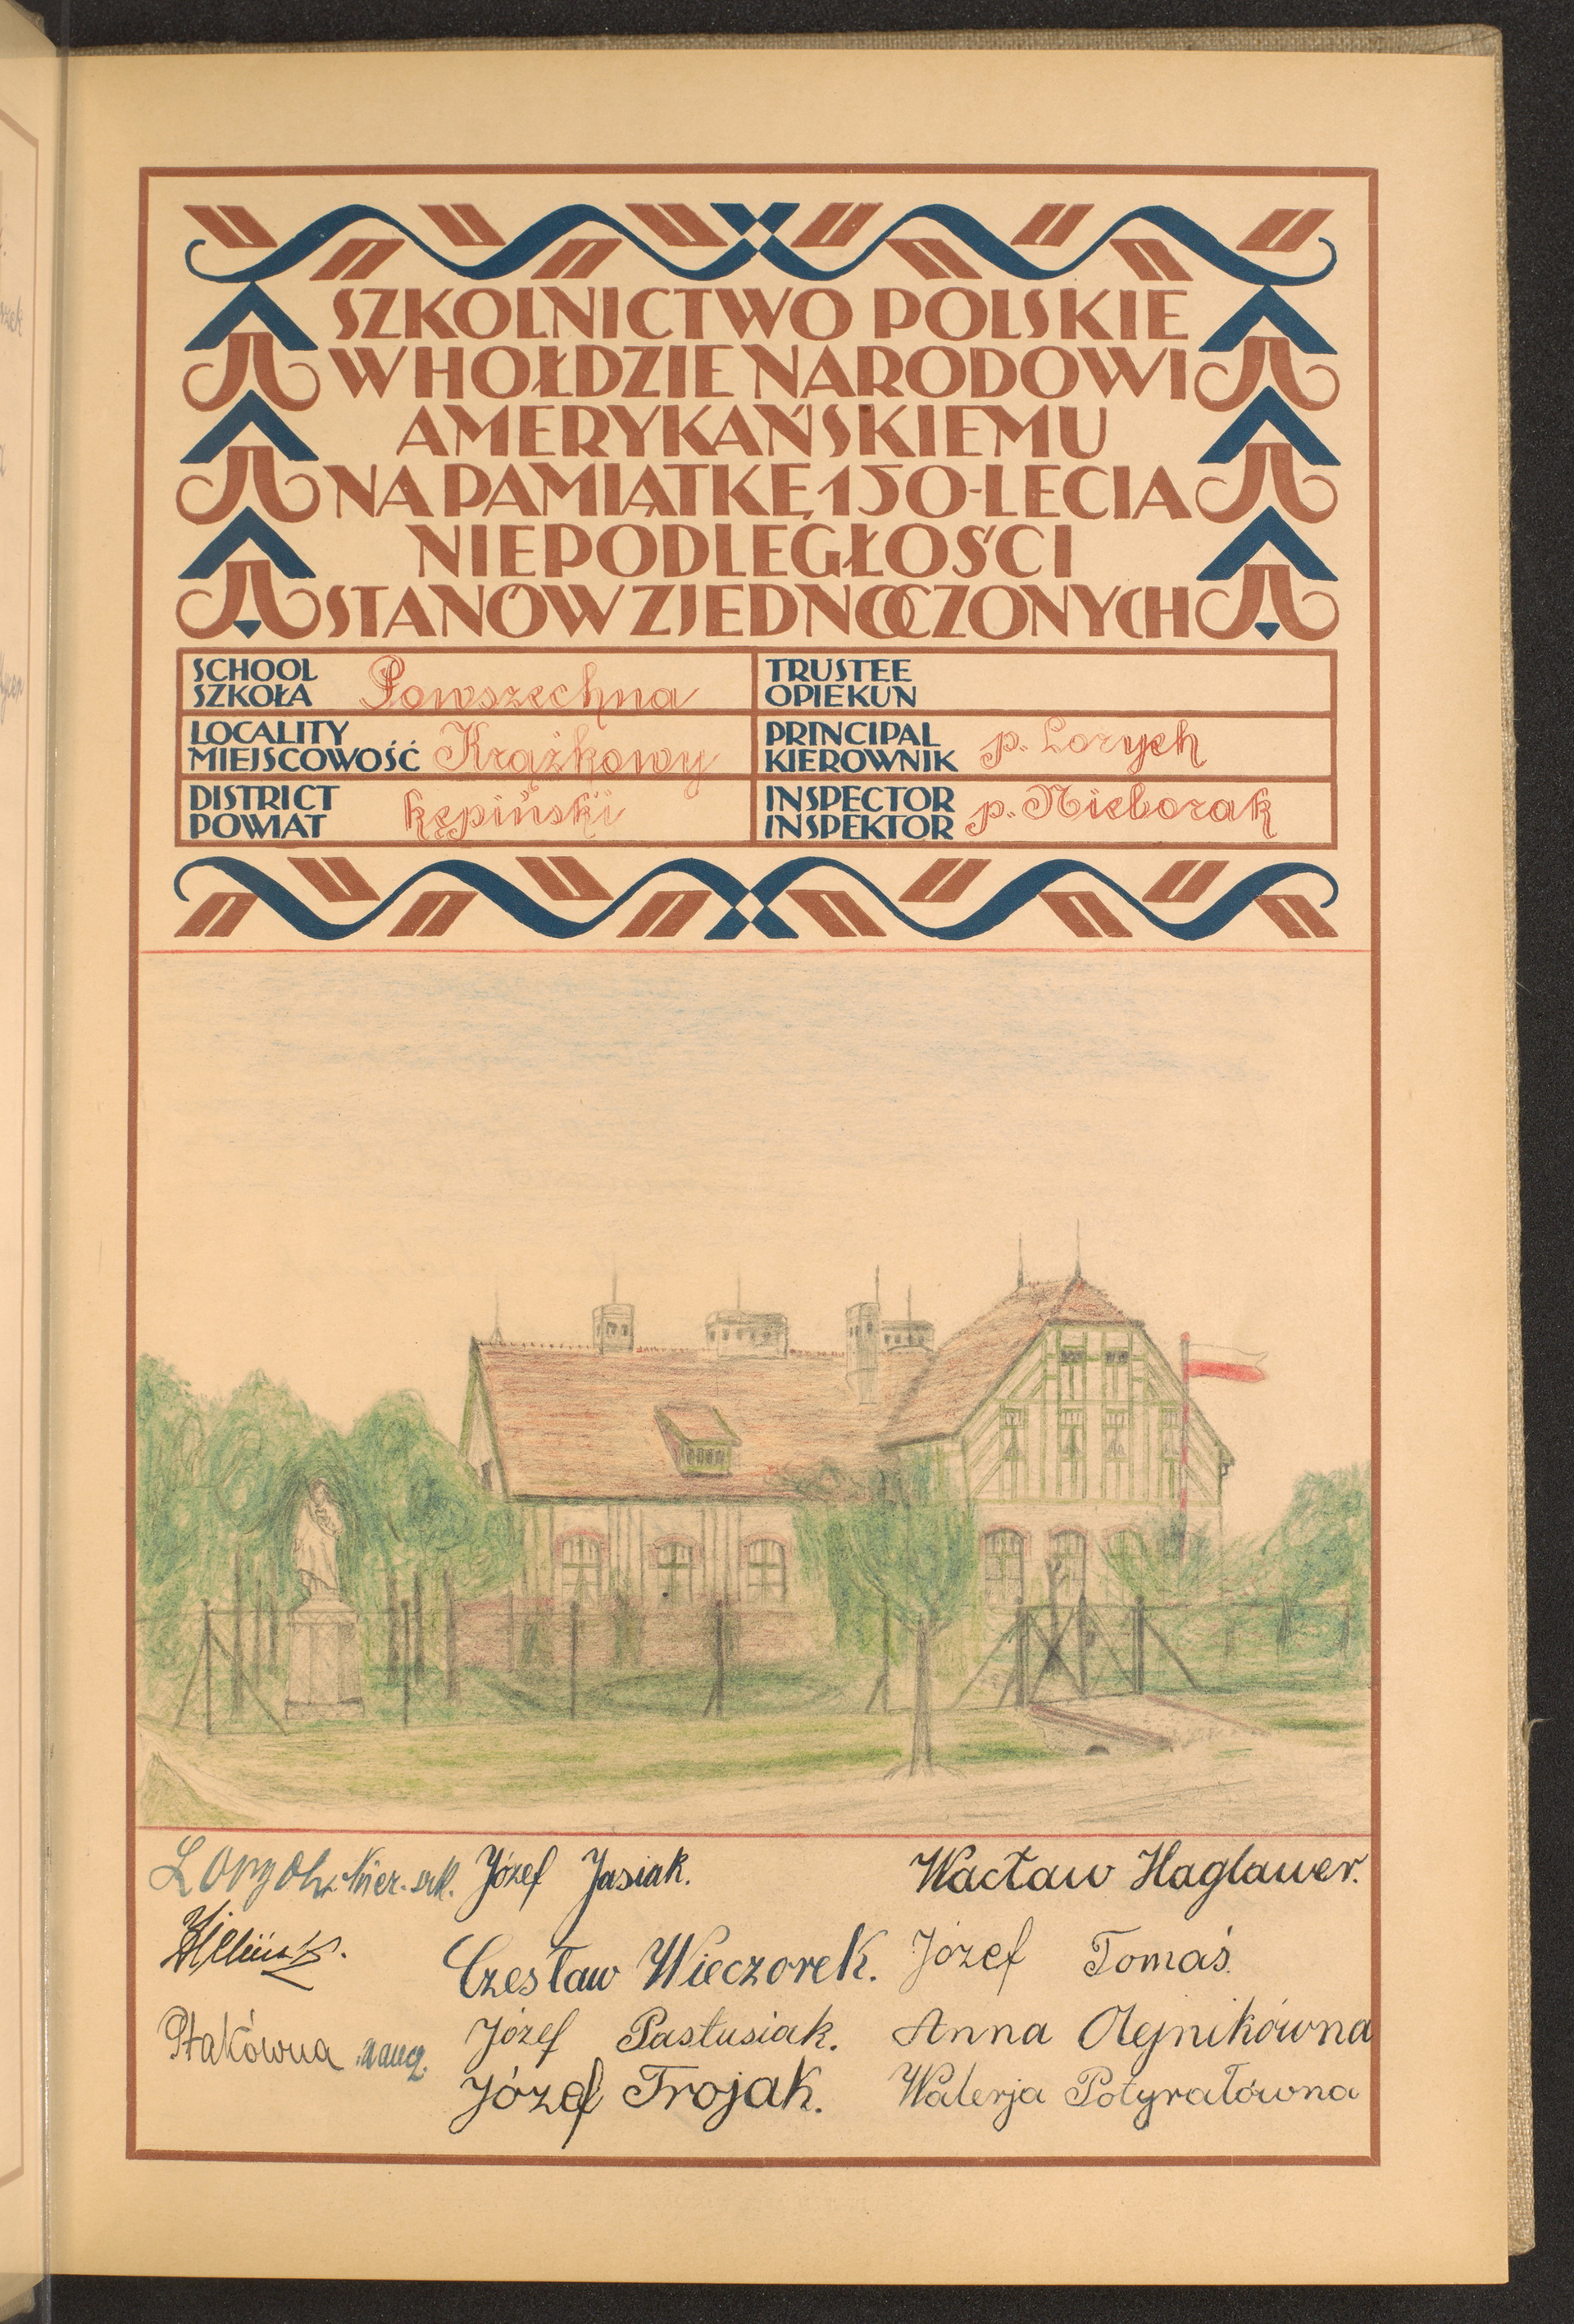 SZKOLNICTWO POLSKIE
W HOŁDZIE NARODOWI
AMERYKAŃSKIEMU
NA PAMIĄTKĘ 150-LECIA
NIEPODLEGŁOŚCI
STANÓW ZJEDNOCZONYCH
SCHOOL
SZKOŁA Powszechna
TRUSTEE
OPIEKUN
LOCALITY
MIEJSCOWOŚĆ Krążkowy
PRINCIPAL
KIEROWNIK p. Lorych
DISTRICT
POWIAT kępiński
INSPECTOR
INSPEKTOR p. Nieborak
Lorych, kier. szk.
Józef Jasiak.
Wacław Haglauer.
Czesław Wieczorek.
Józef Tomaś.
Ptakówna naucz.
Józef Pastusiak.
Anna Olejnikówna
Józef Trojak.
Walerja Potyrałówna